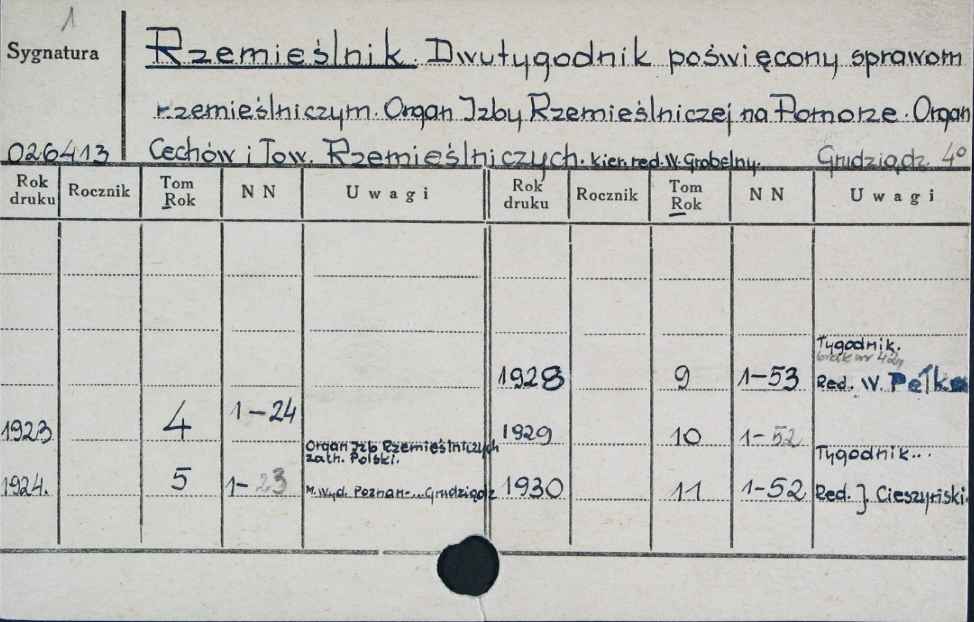 1
Sygnatura
Rzemieślnik. Dwutygodnik poświęcony sprawom
rzemieślniczym. Organ Izby Rzemieślniczej na Pomorze. Organ
026413 Cechów i Tow. Rzemieślniczych. kier. red. W. Grobelny. Grudziądz. 4°
Rok druku Rocznik Tom Rok NN Uwagi Rok druku Rocznik Tom Rok NN Uwagi
Tygodnik.
brak nr 42
1928 9 1-53 Red. W. Pełka
1923 4 1-24 1929 10 1-52
Organ Izb Rzemieślniczych
zach. Polski.
Tygodnik...
1924. 5 1-23 M. wyd. Poznań-...Grudziądz 1930 11 1-52 Red. J. Cieszyński.